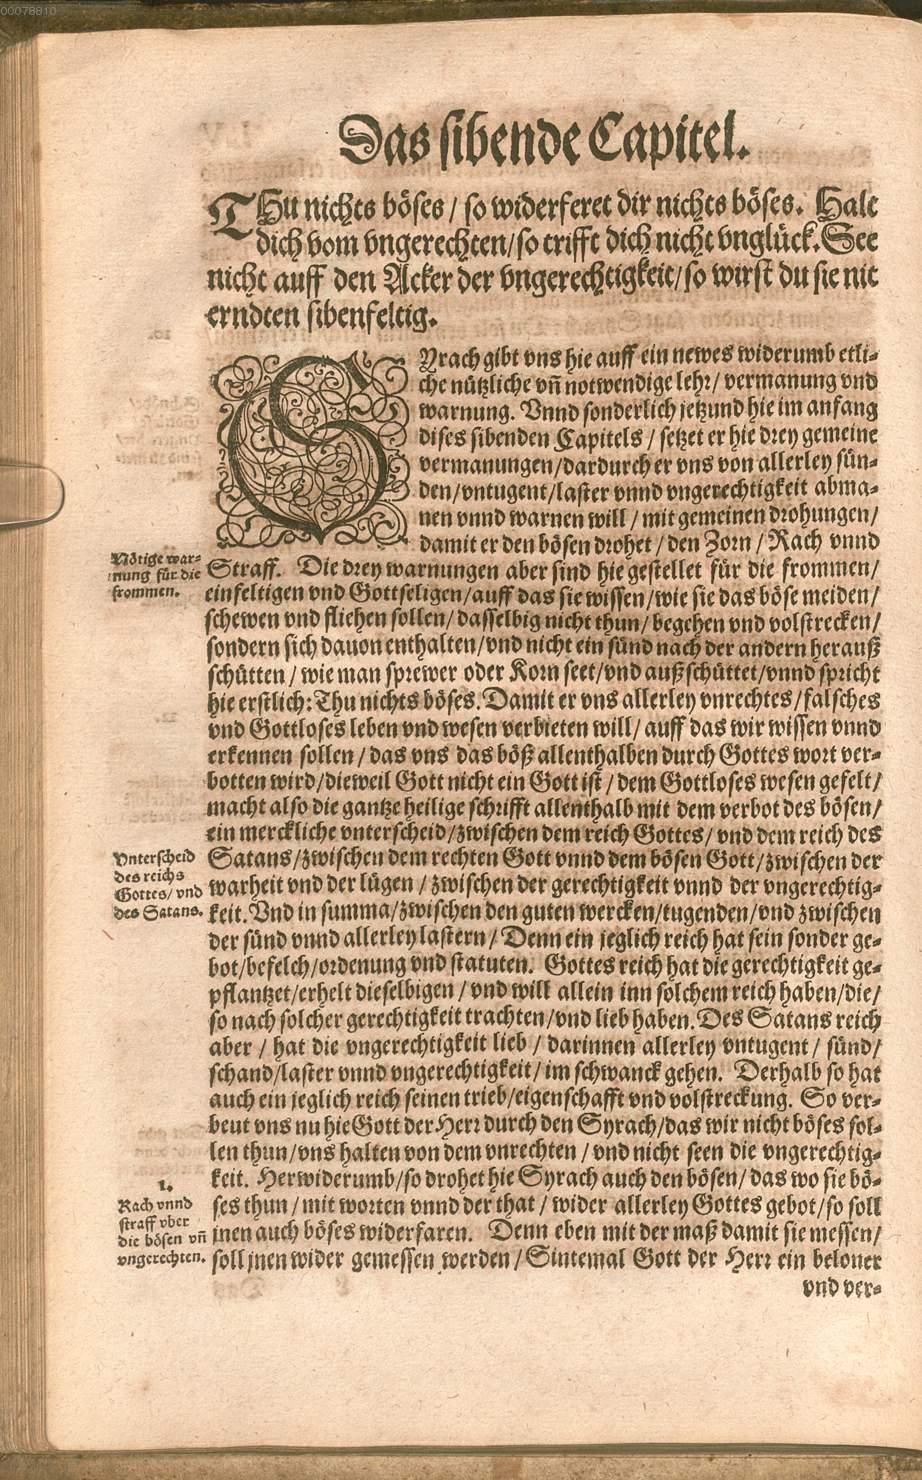 00078810
Das sibende Capitel.
THu nichts böses / so widerferet dir nichts böses. Halt
dich vom vngerechten/so trifft dich nicht vnglück. See
nicht auff den Acker der vngerechtigkeit/so wirst du sie nit
erndten sibenfeltig.
SYrach gibt vns hie auff ein newes widerumb etli-
che nützliche vñ notwendige lehr/ vermanung vnd
warnung. Vnnd sonderlich jetzund hie im anfang
dises sibenden Capitels / setzet er hie drey gemeine
vermanungen/dardurch er vns von allerley sün-
den/vntugent/laster vnnd vngerechtigkeit abma-
nen vnnd warnen will / mit gemeinen drohungen/
damit er den bösen drohet / den Zorn / Rach vnnd
Nötige war-
nung für die
frommen.
Straff. Die drey warnungen aber sind hie gestellet für die frommen/
einfeltigen vnd Gottseligen/auff das sie wissen/wie sie das böse meiden/
schewen vnd fliehen sollen/ dasselbig nicht thun/ begehen vnd volstrecken/
sondern sich dauon enthalten/vnd nicht ein sünd nach der andern herauß
schütten / wie man sprewer oder Korn seet/vnd außschüttet/vnnd spricht
hie erstlich: Thu nichts böses. Damit er vns allerley vnrechtes/falsches
vnd Gottloses leben vnd wesen verbieten will/ auff das wir wissen vnnd
erkennen sollen / das vns das böß allenthalben durch Gottes wort ver-
botten wird/dieweil Gott nicht ein Gott ist / dem Gottloses wesen gefelt/
macht also die gantze heilige schrifft allenthalb mit dem verbot des bösen/
ein merckliche vnterscheid/zwischen dem reich Gottes/ vnd dem reich des
Vnterscheid
des reichs
Gottes/ vnd
des Satans.
Satans/zwischen dem rechten Gott vnnd dem bösen Gott/zwischen der
warheit vnd der lügen / zwischen der gerechtigkeit vnnd der vngerechtig-
keit. Vnd in summa/zwischen den guten wercken/tugenden/vnd zwischen
der sünd vnnd allerley lastern/ Denn ein jeglich reich hat sein sonder ge-
bot/befelch/ordenung vnd statuten. Gottes reich hat die gerechtigkeit ge-
pflantzet/erhelt dieselbigen / vnd will allein inn solchem reich haben/die/
so nach solcher gerechtigkeit trachten/vnd lieb haben. Des Satans reich
aber / hat die vngerechtigkeit lieb / darinnen allerley vntugent / sünd/
schand/laster vnnd vngerechtigkeit/ im schwanck gehen. Derhalb so hat
auch ein jeglich reich seinen trieb/eigenschafft vnd volstreckung. So ver-
beut vns nu hie Gott der Herr durch den Syrach/das wir nicht böses sol-
len thun/vns halten von dem vnrechten / vnd nicht seen die vngerechtig-
keit. Herwiderumb/so drohet hie Syrach auch den bösen/das wo sie bö-
1.
Rach vnnd
straff vber
die bösen vñ
vngerechten.
ses thun / mit worten vnnd der that / wider allerley Gottes gebot/so soll
jnen auch böses widerfaren. Denn eben mit der maß damit sie messen/
soll jnen wider gemessen werden / Sintemal Gott der Herr ein beloner
vnd ver-